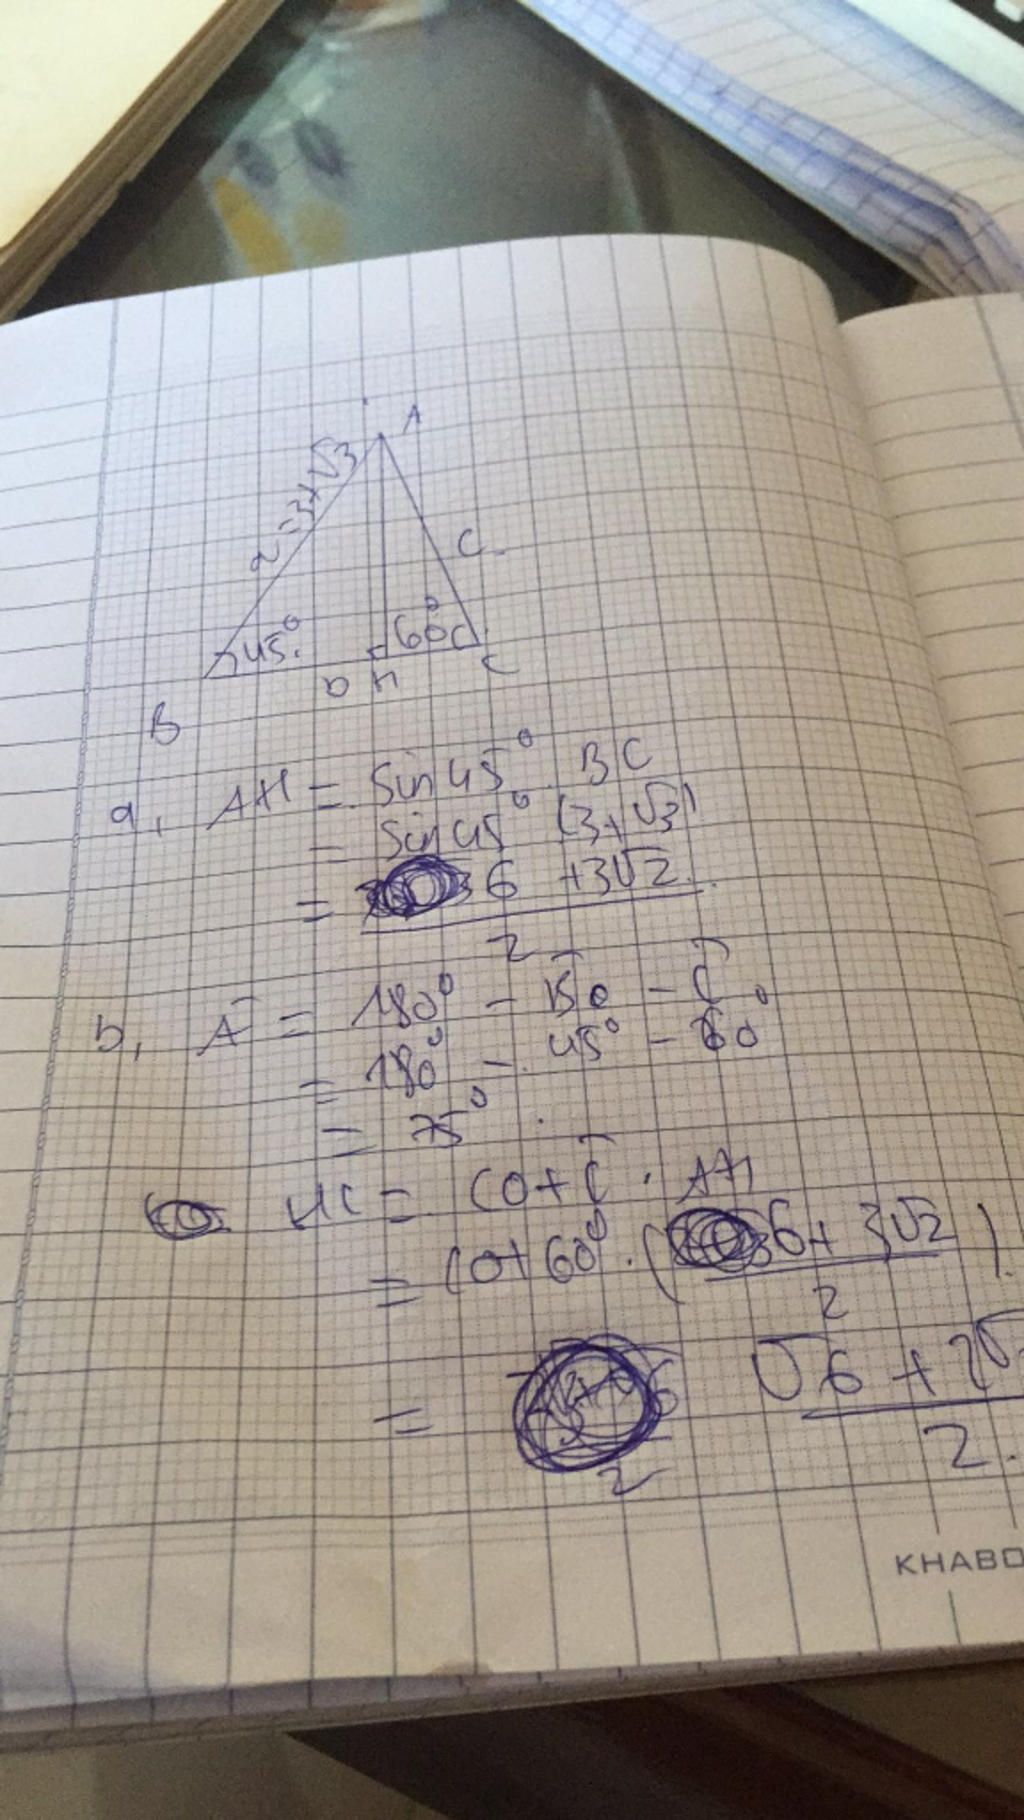 A
a = 3+√3
C
45°
60°
C
b H
B
a, AH = Sin 45° . BC
= Sin 45° (3+√3)
= 6 +3√2
2
b, Â = 180° - B - Ĉ
= 180° - 45° - 60°
= 75°.
HC = Cot Ĉ . AH
= Cot 60° . ( 6+ 3√2 ).
2
= √6 + 2√
2.
KHABO